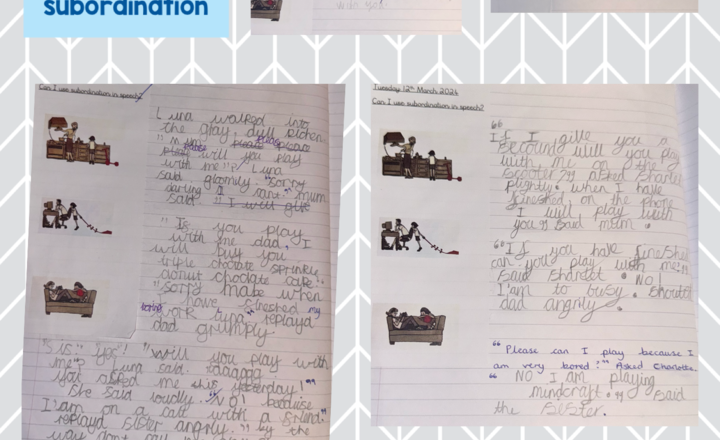 subordination
Can I use subordination in speech?
Luna walked into
the gray, dull kitchen
will you play
with me"? Luna
said gloomly. "Sorry
darling I can't mum
said.
"If you play
with me dad, I
will buy you
triple choclate sprinkle
donut choclate cake".
"sorry mate when
I have fineshed my
work
dad grumply.
"Sis" "yes"! "Will you play with
me"? Luna said.
You asked me this yesterday!"
She said loudly. "NO! because
I'am on a call with a friend."
replayd sister angrily. "by the
way don't
Tuesday 12th March 2024
Can I use subordination in speech?
"If I give you a
secound will you play
with me on the
scooter" asked Sharlot
plightly. when I have
fineshed on the phone
I will play with
you" said mum.
"If you have fineshed
can you play with me"
said sharott. NO!
I'am to busy. shouted
dad angrily.
"Please can I play because I
am very bored!" Asked Charlotte.
"NO I am playing
mindcraft." said
the sister.